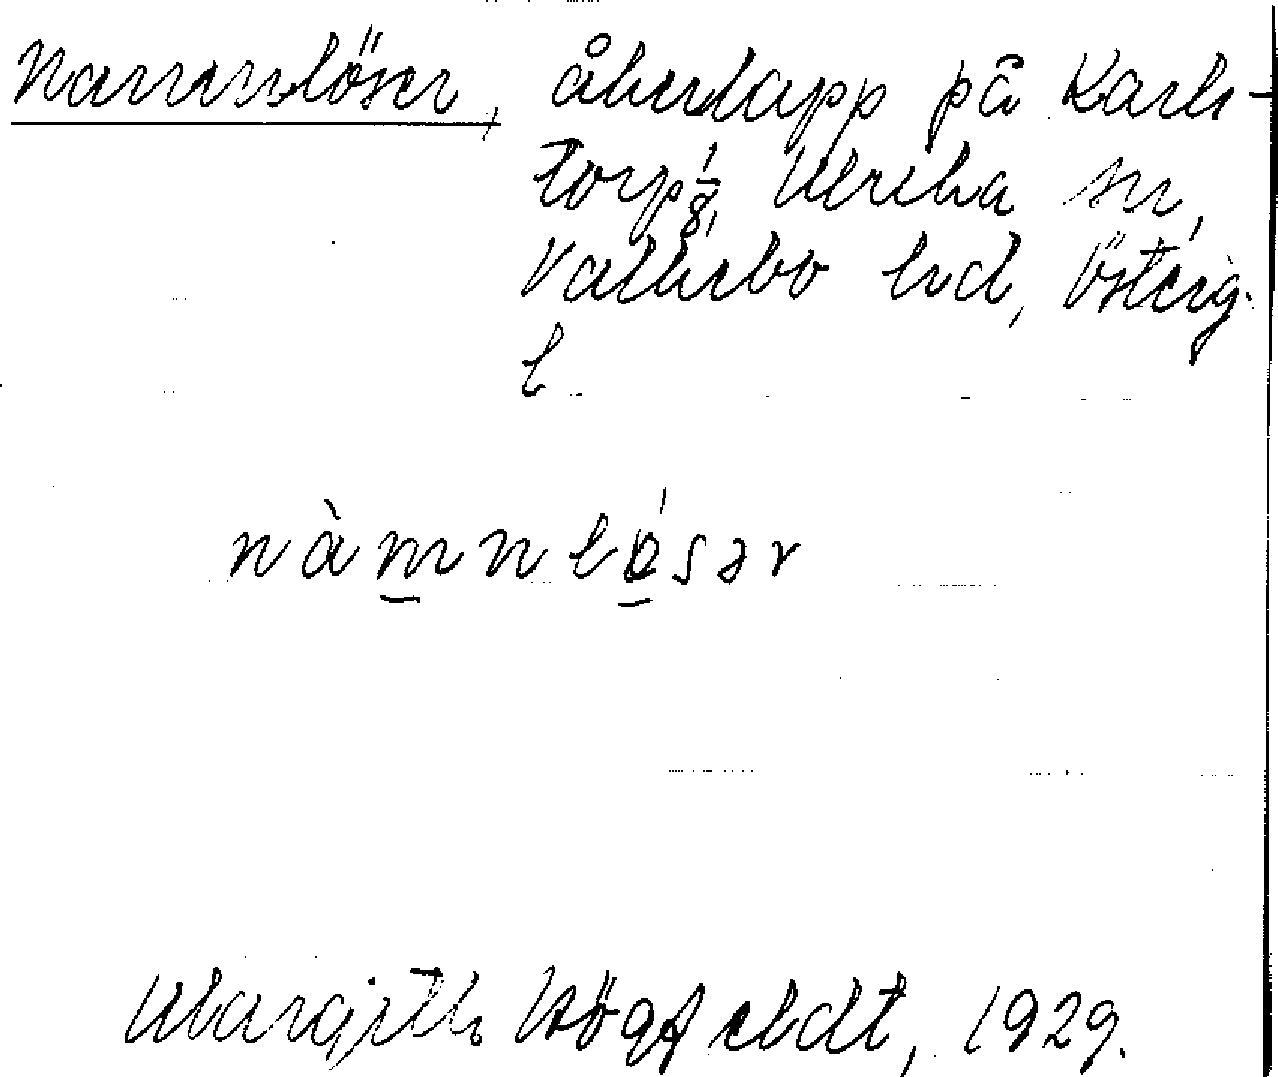 Namnlöser, åkerlapp på Karls-
torp 1/8, Ulrika sn,
Valkebo hd, Österg.
l
nàmnlósər
Margith Högfeldt, 1929.